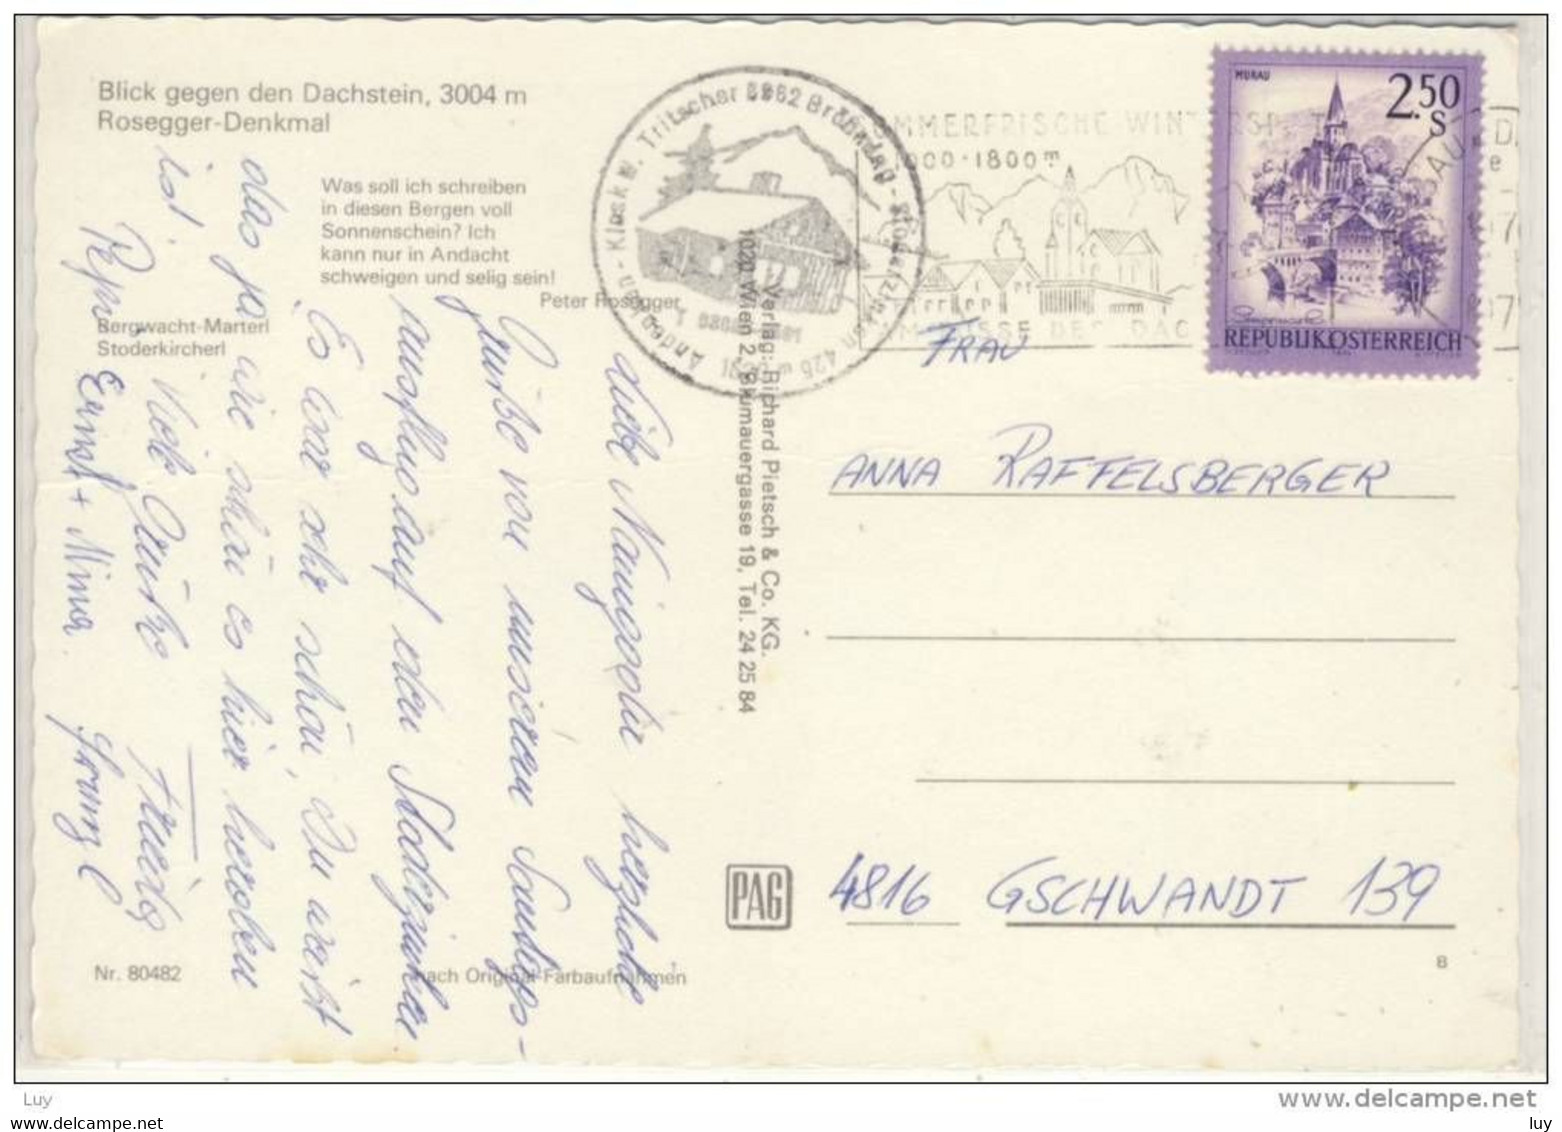 Blick gegen den Dachstein, 3004 m
Rosegger-Denkmal
Was soll ich schreiben
in diesen Bergen voll
Sonnenschein? Ich
kann nur in Andacht
schweigen und selig sein!
Peter Rosegger
Bergwacht-Marterl
Stoderkircherl
Liebe herzliche
Grüße von unserem Sonntags-
ausflug auf den Stoderzinken
Es war sehr schön, Du weist
das ja wie schön es hier heroben
ist.
Viele Grüße Frieda
Pepi
Ernst + Mina Franz
Nr. 80482
nach Original-Farbaufnahmen
Verlag: Richard Pietsch & Co. KG.
1020 Wien 2, Blumauergasse 19, Tel. 24 25 84
PAG
W. Tritscher 8962 Gröbming - Stoderzinken
Andenken - Kiosk
SOMMERFRISCHE - WINTERSPORT
1000 - 1800 m
MURAU
2.50
S
REPUBLIK ÖSTERREICH
FRAU
ANNA RAFFELSBERGER
4816 GSCHWANDT 139
8
Luy
www.delcampe.net
luy